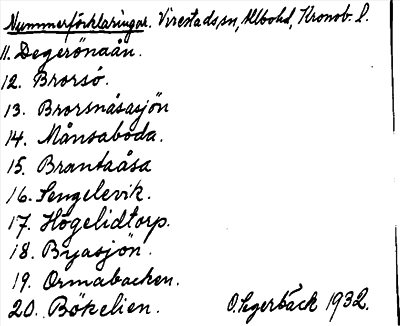 Nummerförklaringar. Virestads sn, Allbo hd, Kronob. l.
11. Degerönaån.
12. Brorsö.
13. Brorsnäsasjön
14. Månsaboda.
15. Brantaåsa
16. Sengelevik.
17. Högelidtorp.
18. Byasjön.
19. Ormabacken.
20. Bökelien. O. Segerbäck 1932.